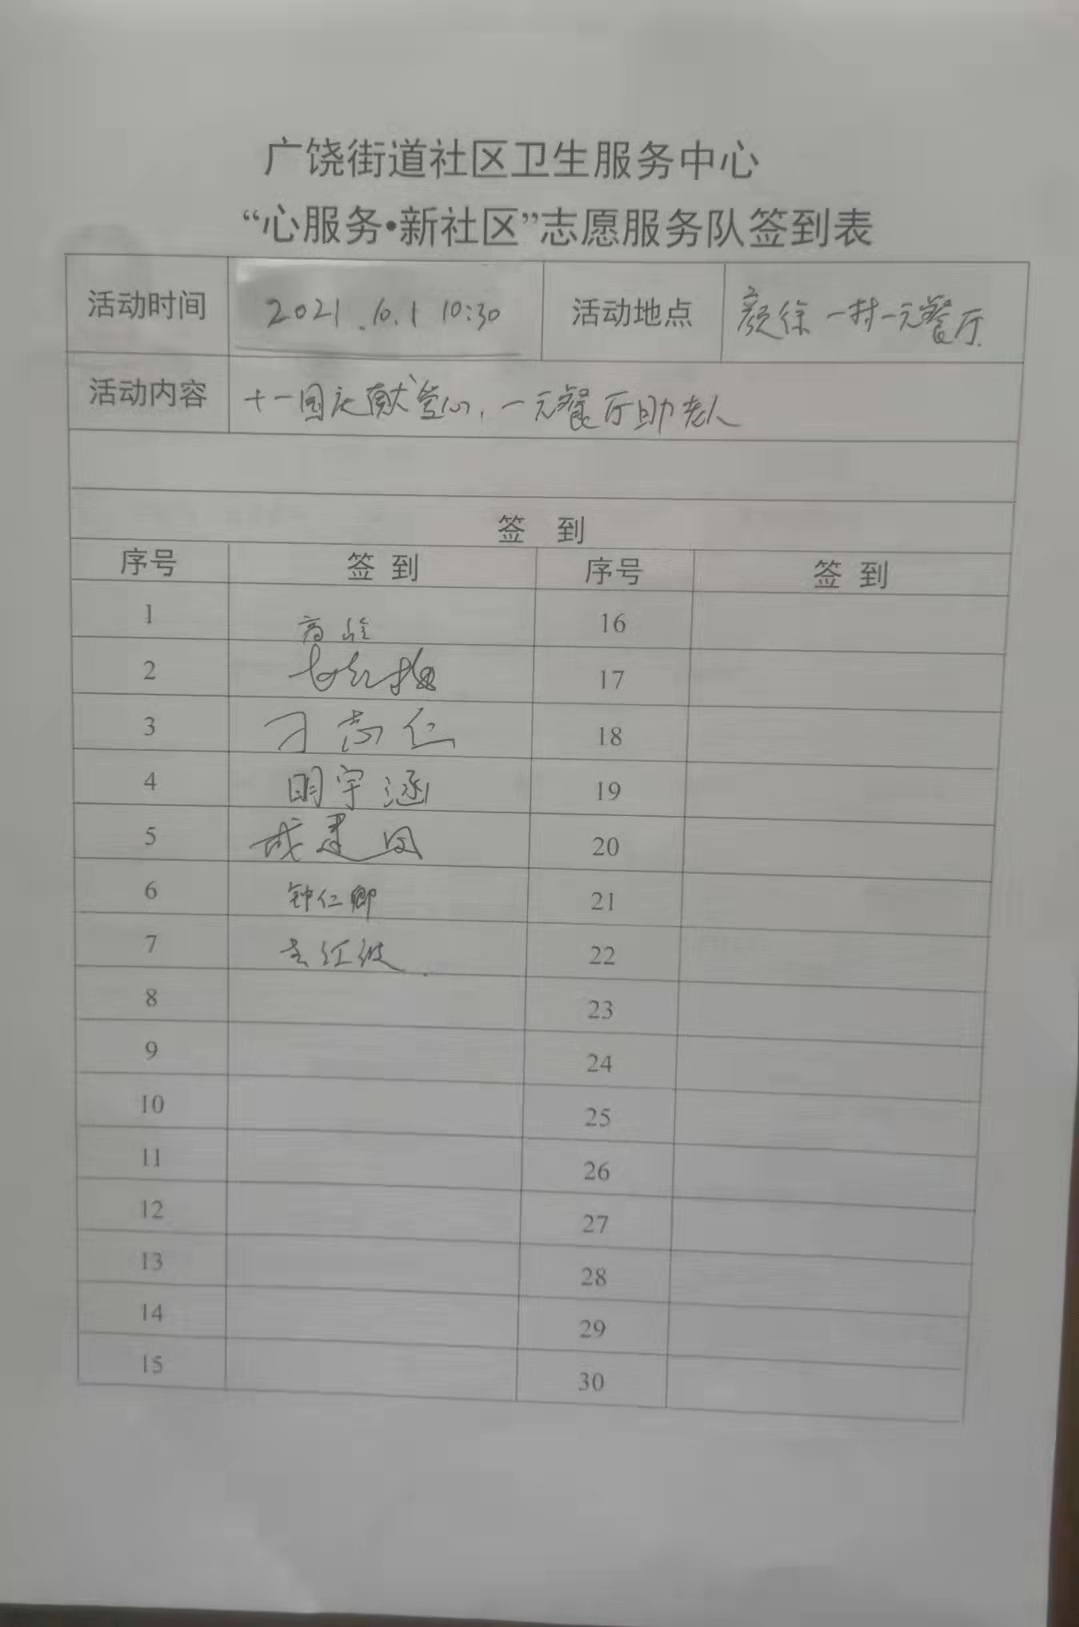 广饶街道社区卫生服务中心
“心服务•新社区”志愿服务队签到表
活动时间 2021.10.1 10:30 活动地点 颜徐一村一元餐厅
活动内容 十一国庆献爱心,一元餐厅助老人
签 到
序号 签到 序号 签到
1 16
2 17
3 刁志仁 18
4 明宇涵 19
5 成建国 20
6 钟仁卿 21
7 红波 22
8 23
9 24
10 25
11 26
12 27
13 28
14 29
15 30